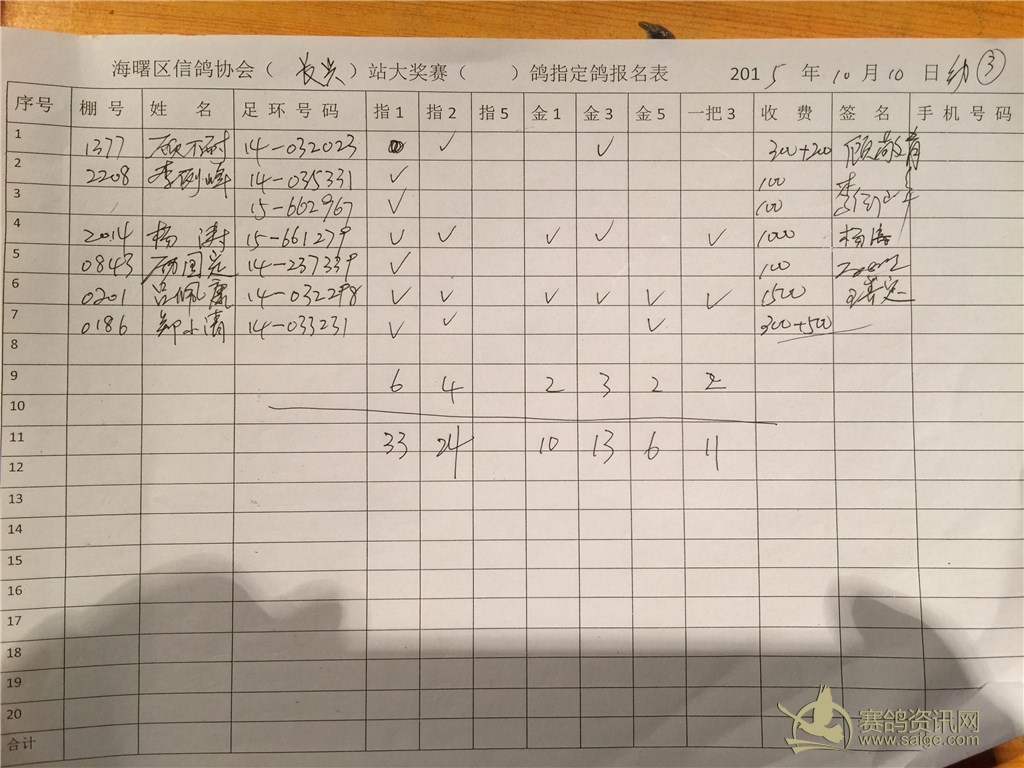 海曙区信鸽协会（长兴）站大奖赛（ ）鸽指定鸽报名表 2015年10月10日 幼 ③
序号 棚号 姓名 足环号码 指1 指2 指5 金1 金3 金5 一把3 收费 签名 手机号码
1 1377 14-032023 ✓ ✓ 300+200
2 2208 李列峰 14-035331 ✓ 100
3 15-662967 ✓ 100
4 2014 杨涛 15-661279 ✓ ✓ ✓ ✓ ✓ 1000 杨涛
5 0843 14-237339 ✓ 100
6 0201 吕佩康 14-032298 ✓ ✓ ✓ ✓ ✓ ✓ 1500
7 0186 郑小清 14-033231 ✓ ✓ ✓ 300+500
8
9 6 4 2 3 2 2
10
11 33 24 10 13 6 11
12
13
14
15
16
17
18
19
20
合计
赛鸽资讯网
www.saige.com